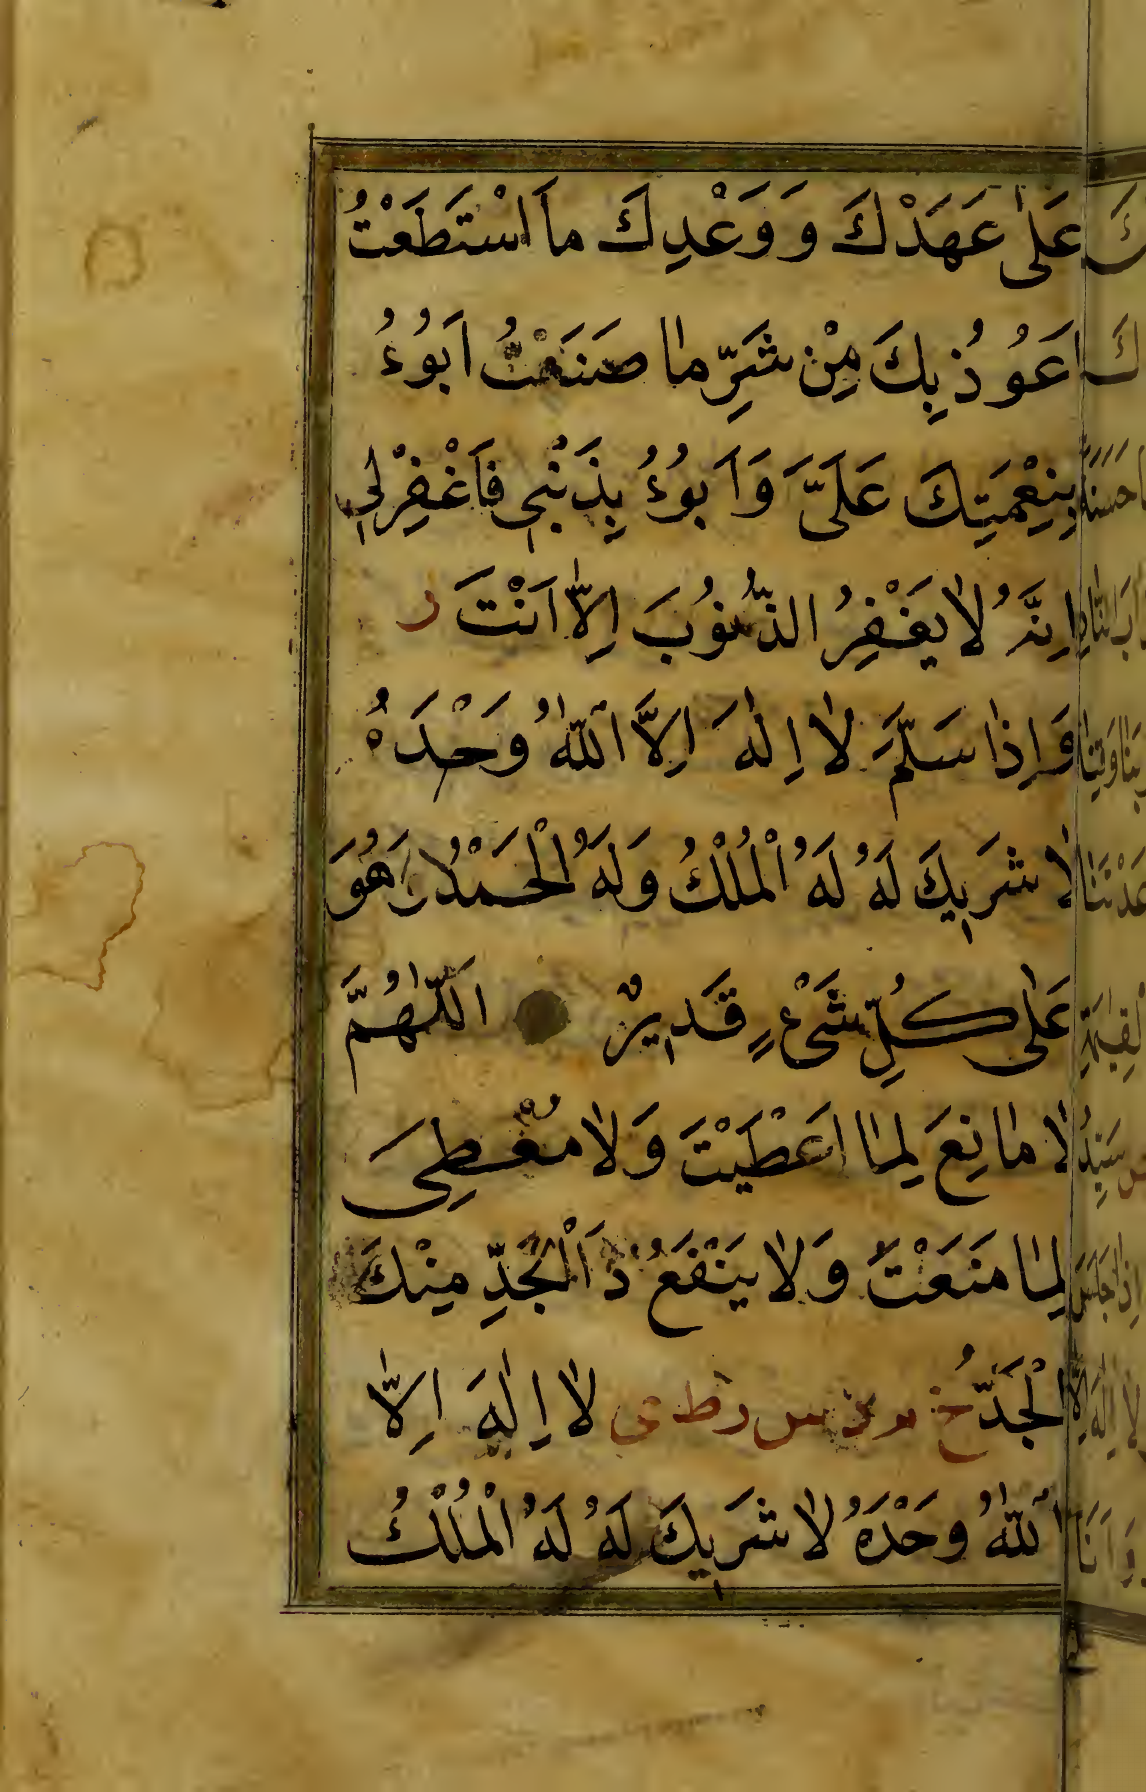 عَلٰى عَهَدْكَ وَ وَعْدِكَ مَا اسْتَطَعْتُ
اَعُوُذُ بِكَ مِنْ شَرِّ مٰا صَنَعْتُ اَبُوُءُ
بِنِعْمَتِكَ عَلَىَّ وَ اَبُوُءُ بِذَنْبِى فَاغْفِرْلِى
اِنَّهُ لٰا يَغْفِرُ الذُّنُوُبَ اِلّٰا اَنْتَ ر
وَاِذٰا سَلَّمَ لٰا اِلٰهَ اِلَّا اللّٰهُ وَحْدَهُ
لٰا شَرِيكَ لَهُ لَهُ الْمُلْكُ وَلَهُ الْحَمْدُ وَهُوَ
عَلٰى كُلِّ شَىْءٍ قَدِيرٌ اَللّٰهُمَّ
لٰا مٰانِعَ لِمٰا اَعْطَيْتَ وَلٰا مُعْطِىَ
لِمٰا مَنَعْتَ وَلٰا يَنْفَعُ ذَا الْجَدِّ مِنْكَ
الْجَدُّ خ م د س ر ط ى لٰا اِلٰهَ اِلّٰا
اللّٰهُ وَحْدَهُ لٰا شَرِيكَ لَهُ لَهُ الْمُلْكُ